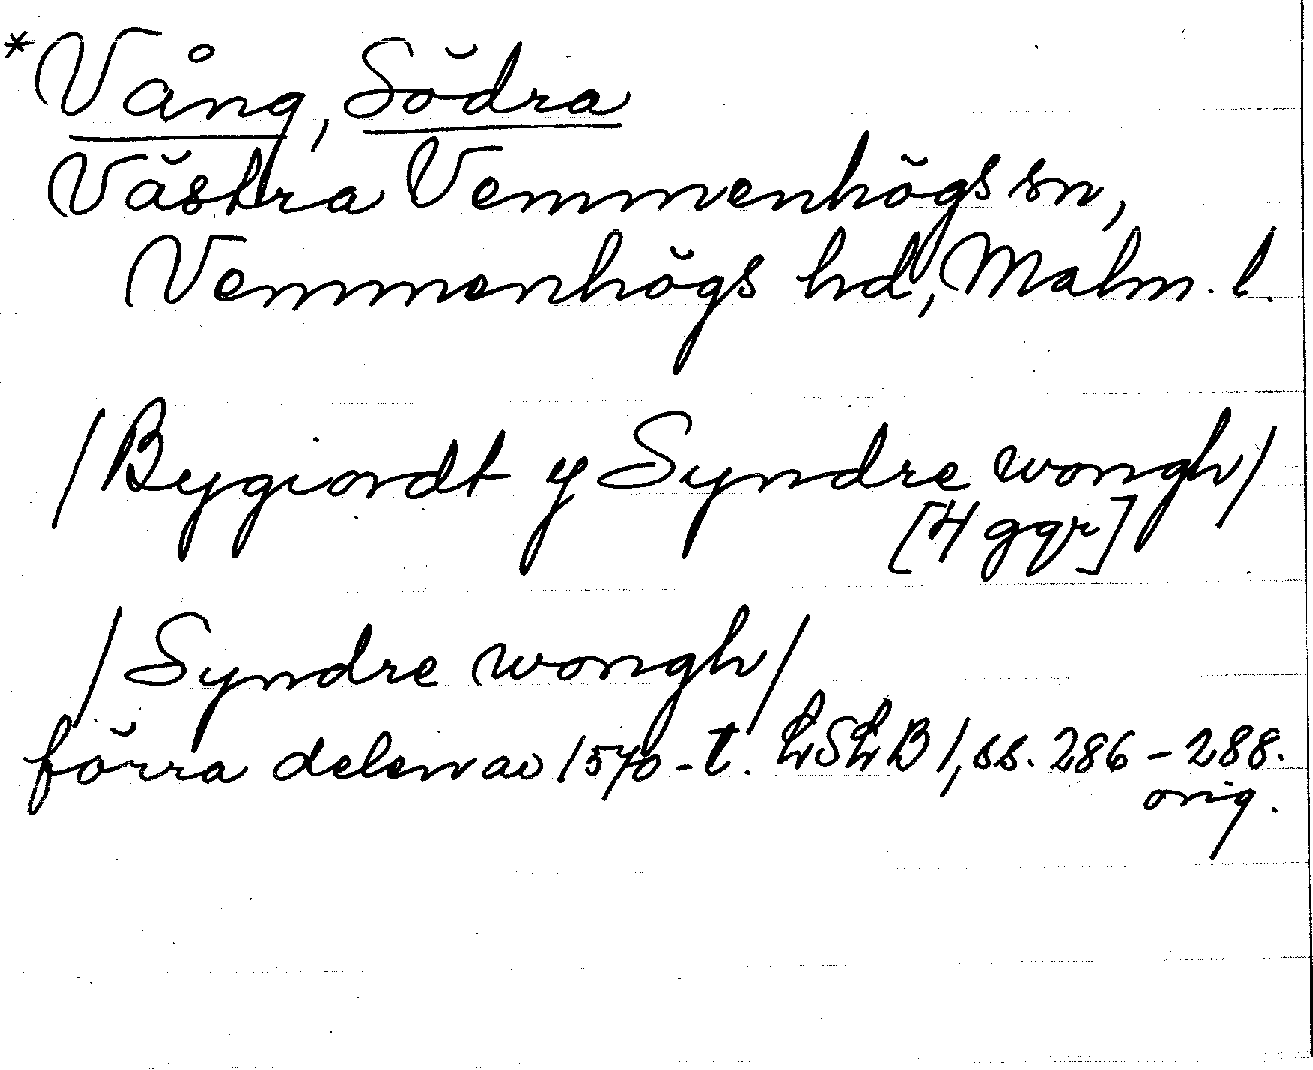 *Vång, Södra
Västra Vemmenhögs sn,
Vemmenhögs hd, Malm. l.
/Bygiordt y Syndre wongh/
[4 ggr]
/Syndre wongh/
förra delen av 1570-t. LSLB 1, ss. 286-288.
orig.